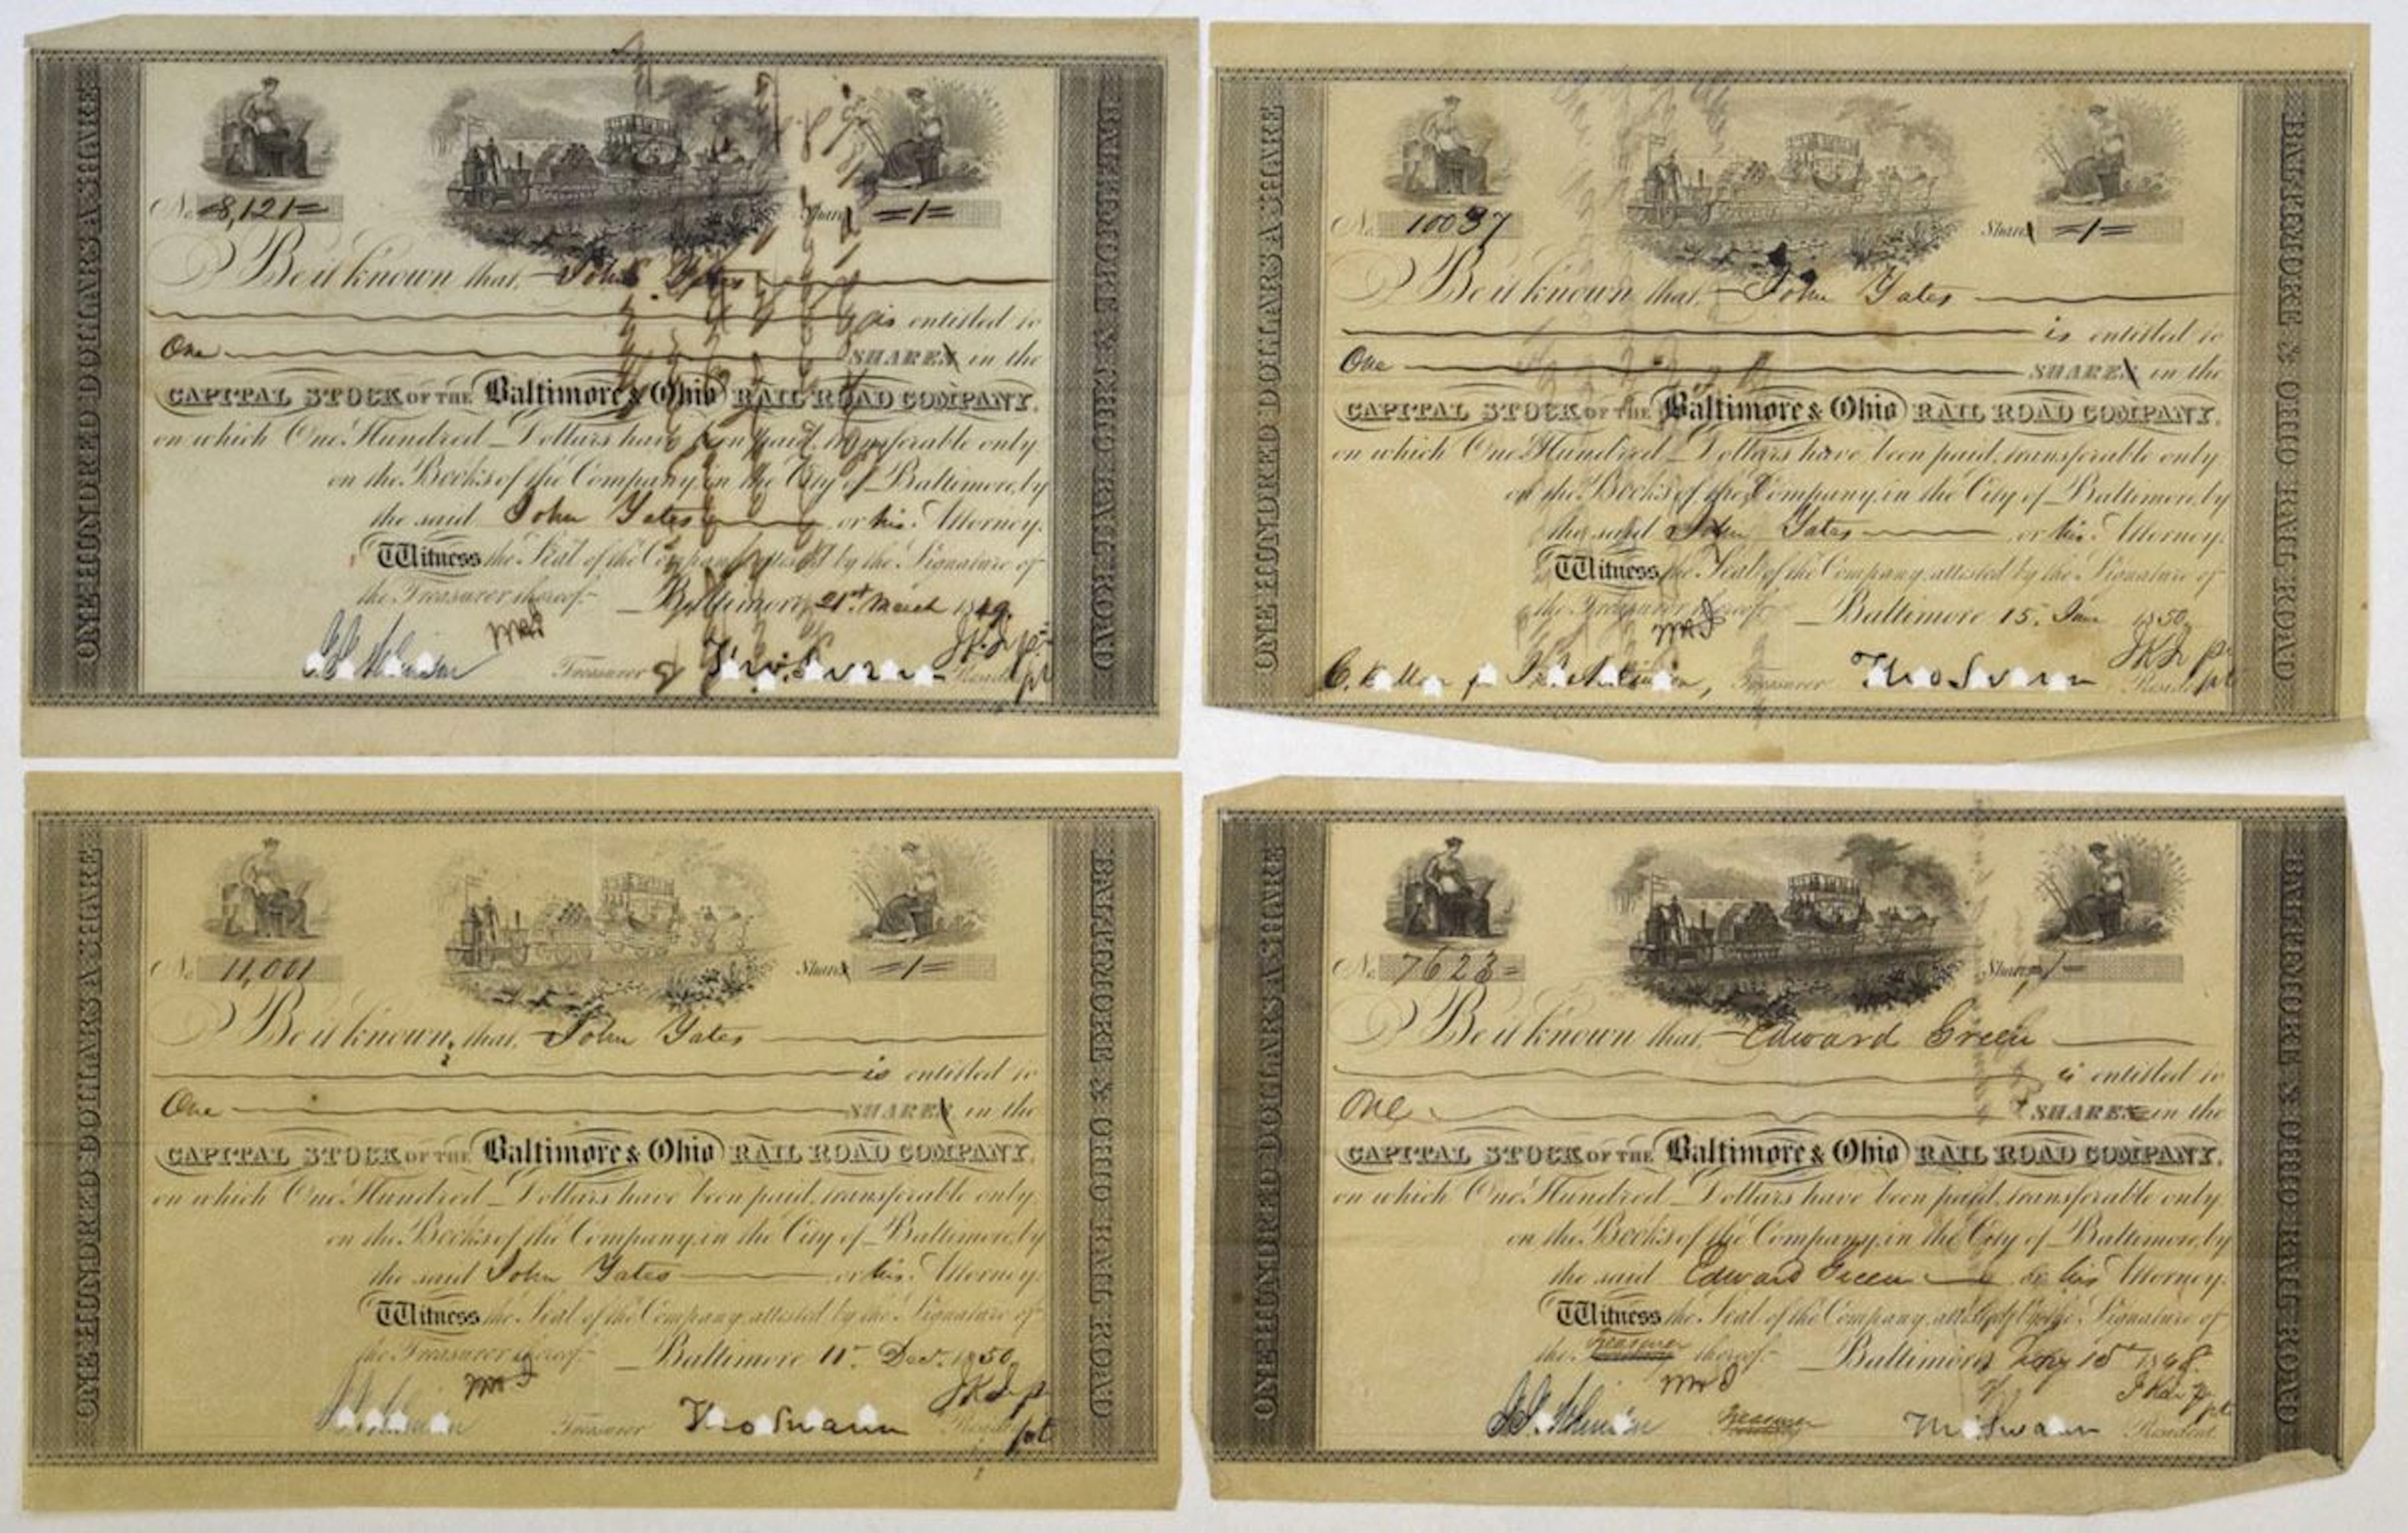 ONE HUNDRED DOLLARS A SHARE
No. 8,121=
Share =1=
Be it known that, John Yates
is entitled to
One SHARES in the
CAPITAL STOCK OF THE Baltimore & Ohio RAIL ROAD COMPANY,
on which One Hundred Dollars have been paid, transferable only
on the Books of the Company, in the City of Baltimore, by
the said John Yates or his Attorney.
Witness the Seal of the Company, attested by the Signature of
the Treasurer thereof. Baltimore, 21st March 1849.
Treasurer Thos Swann President
BALTIMORE & OHIO RAIL ROAD
ONE HUNDRED DOLLARS A SHARE
No. 10037
Shares =1=
Be it known, that, John Yates
is entitled to
One SHARES in the
CAPITAL STOCK OF THE Baltimore & Ohio RAIL ROAD COMPANY,
on which One Hundred Dollars have been paid, transferable only
on the Books of the Company, in the City of Baltimore, by
the said John Yates or his Attorney.
Witness the Seal of the Company, attested by the Signature of
the Treasurer thereof. Baltimore 15. June 1850.
Treasurer Thos Swann President
BALTIMORE & OHIO RAIL ROAD
ONE HUNDRED DOLLARS A SHARE
No. 11,001
Shares =1=
Be it known, that, John Yates
is entitled to
One SHARES in the
CAPITAL STOCK OF THE Baltimore & Ohio RAIL ROAD COMPANY,
on which One Hundred Dollars have been paid, transferable only
on the Books of the Company, in the City of Baltimore, by
the said John Yates or his Attorney.
Witness the Seal of the Company, attested by the Signature of
the Treasurer thereof. Baltimore 11. Dec. 1850
Treasurer Thos Swann President
BALTIMORE & OHIO RAIL ROAD
ONE HUNDRED DOLLARS A SHARE
No. 7623=
Shares 1
Be it known that, Edward Green
is entitled to
One SHARES in the
CAPITAL STOCK OF THE Baltimore & Ohio RAIL ROAD COMPANY,
on which One Hundred Dollars have been paid, transferable only
on the Books of the Company, in the City of Baltimore, by
the said Edward Green or his Attorney.
Witness the Seal of the Company, attested by the Signature of
the Treasurer thereof. Baltimore 15 1848.
Treasurer Thos Swann President
BALTIMORE & OHIO RAIL ROAD